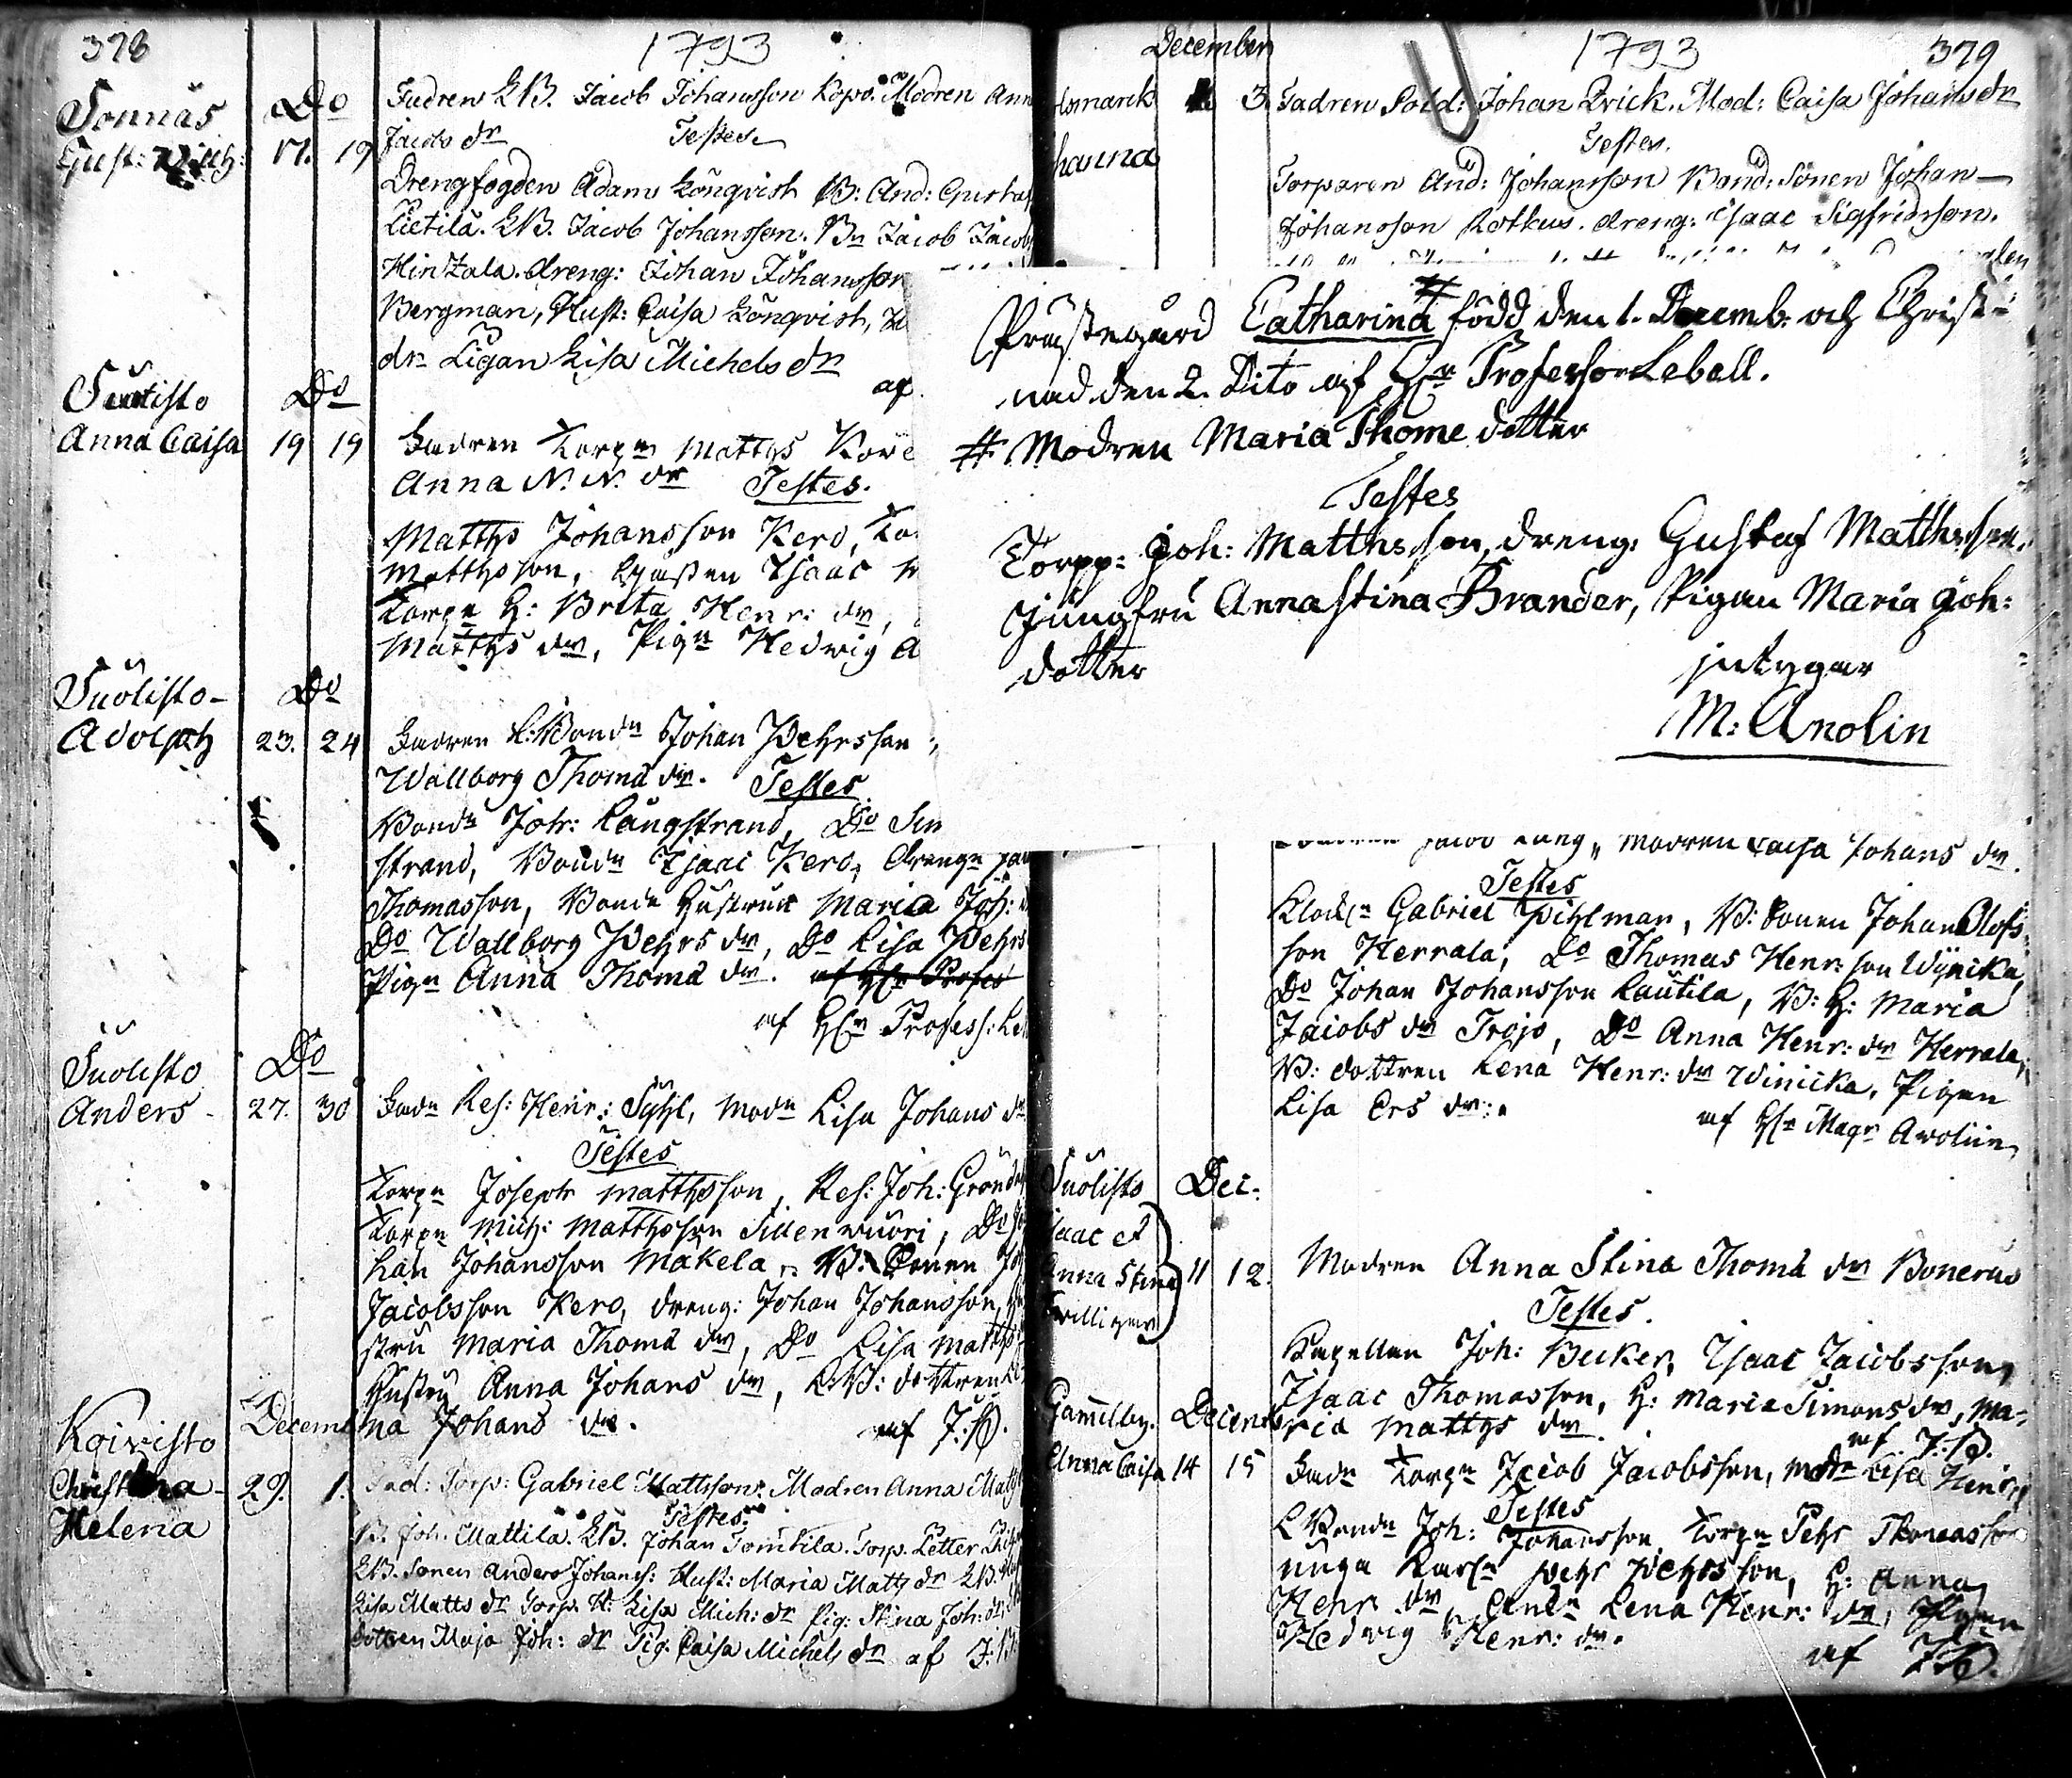 378
1793
Sonnäs
Do
Gust:
17. 19
Fadren LB. Jacob Johansson Kopo. Modren Ann
Jacobs dr
Testes
Drengfogden Adam Lönqvist B: And:
Lietilä. LB. Jacob Johansson. Bn Jacob Jacob
Hintzala. dreng: Johan Johansson
Bergman, Hust: Caisa Lönqvist,
dr Pigan Lisa Michels dr
af
Do
Anna Caisa 19 19
Fadren Torpn Matths
Anna N. N. dr Testes.
Matths Johansson Kero, To
Matthsson, Isaac
Torpn H: Brita Henr: dr,
Matths dr, Pign Hedwig A
Suolisto-
Do
Adolph 23. 24
Fadren L: Bondn Johan Pehrsson
Wallborg Thomä dr. Testes
Bondn Joh: Långstrand, Do Sim
strand, Bondn Isaac Kero, drengn
Thomasson, Bonde Hustrun Maria Joh:
Do Wallborg Pehrs dr, Do Lisa Pehrs
Pign Anna Thomä dr. af Hr Profes
af Hr Profess: Le
Suolisto
Do
Anders - 27. 30
Fadn Res: Henr: Sÿhl, Modn Lisa Johans dr
Testes
Torpn Joseph Matthsson, Res: Joh: Grönd
Torpn Mich: Matthsson Sillenwuori, Do Jo
han Johansson Makela, B: Sonen Jo
Jacobsson Kero, dreng: Johan Johansson, Hu
stru Maria Thomä dr, Do Lisa Matths
Hustru Anna Johans dr, LB: dottren Le
na Johans dr. af J:B.
Koivisto
Decemb
Christina -
Helena
29. 1.
Fad: Torp: Gabriel Mattsson. Modren Anna Matts
Testes
B. Joh. Mattila. LB. Johan Tomtila. Torp. Petter
LB. Sonen Anders Johans: Hust: Maria Matts dr LB.
Lisa Matts dr Torp. H: Lisa Mich: dr Pig: Stina Joh: dr
dottren Maja Joh: dr Pig: Caisa Michels dr af J:B:
December
1793
379
hanna
3. Fadren Sold: Johan Brick. Mod: Caisa Johans dr
Testes.
Torparen And: Johansson Bond: Sonen Johan
Johansson Rotkus. dreng: Isaac Sigfridsson.
Prästegård Catharina # född den 1. Decemb. och Christ-
nad den 2. Dito af Hr Professor Lebell.
# Modren Maria Thome dotter
Testes
Torpp: Joh: Matthsson, dreng: Gustaf Matthsson.
Jungfru Anna Stina Brander, Pigan Maria Joh:
dotter
intygar
M: Arolin
Jacob Lang, Modren Caisa Johans dr.
Testes
Klockn Gabriel Pihlman, B: Sonen Johan Olofs
son Herrala, Do Thomas Henr: son Wÿnika,
Do Johan Johansson Lautila, B: H: Maria
Jacobs dr Trojo, Do Anna Henr: dr Herrala,
B: dottren Lena Henr: dr Winicka, Pigan
Lisa Ers dr.
af Hr Magr Arolin
Suolisto
Dec:
Isaac et
Anna Stina
Twillingar
11 12.
Modren Anna Stina Thomä dr Bonerus
Testes.
Capellan Joh: Becker, Isaac Jacobsson,
Isaac Thomasson, H: Maria Simons dr, Ma-
ria Matths dr.
af J:B.
Gammelby.
Decemb
Anna Caisa 14 15
Fadn Torpn Jacob Jacobsson, Modn Lisa Henrs
Testes
L Bondn Joh: Johansson, Torpn Pehr Thomasson
unga Karln Pehr Pehrsson, H: Anna
Henr dr, Lena Henr: dr, Pigan
Hedwig Henr: dr.
af J:B.